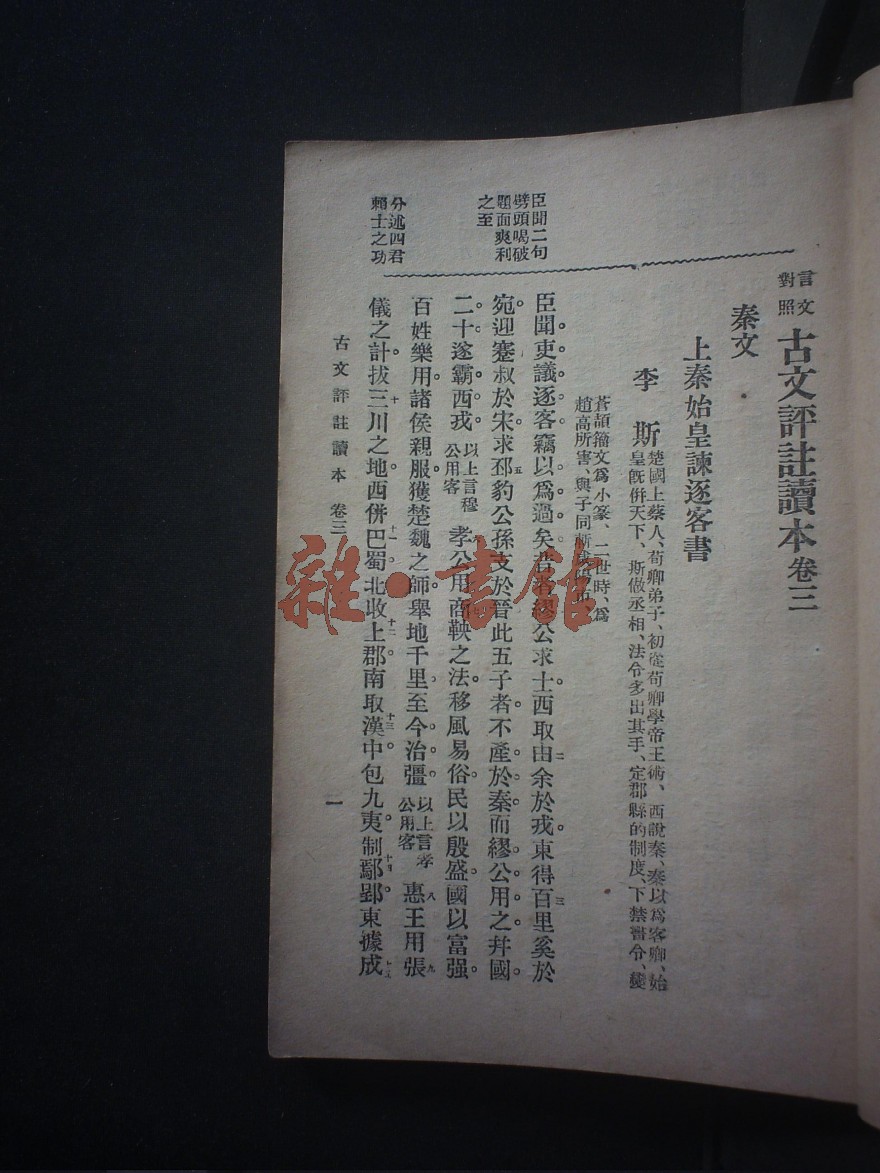 言文
對照
古文評註讀本卷三
秦文
上秦始皇諫逐客書
李斯
楚國上蔡人、荀卿弟子、初從荀卿學帝王術、西說秦、秦以爲客卿、始
皇既併天下、斯做丞相、法令多出其手、定郡縣的制度、下禁書令、變
蒼頡籀文爲小篆、二世時、爲
趙高所害、與子同斬
臣聞二句
劈頭喝破
題面爽利
之至
臣聞吏議逐客竊以爲過矣昔者繆公求士西取由二余於戎東得百里三奚於
宛迎蹇叔於宋求五邳豹公孫支於晉此五子者不產於秦而繆公用之幷國
二十遂霸西戎
以上言穆
公用客
孝公用商鞅之法移風易俗民以殷盛國以富强
百姓樂用諸侯親服獲楚魏之師舉地千里至今治彊
以上言孝
公用客
惠八王用張九
分述四君
賴士之功
儀之計拔十三川之地西併巴十一蜀北收上十二郡南取漢十三中包九夷制鄢十四郢東據成
古文評註讀本 卷三
一
雜·書館